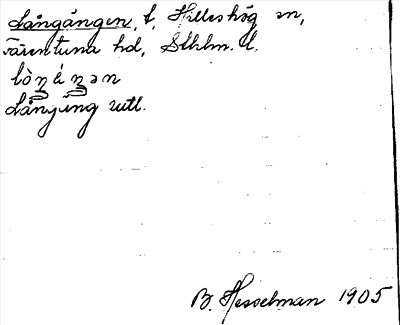 Långängen, t, Hilleshög sn,
Färentuna hd, Sthlm. l.
lò̀ŋéŋən
Långäng uttl.
B. Hesselman 1905